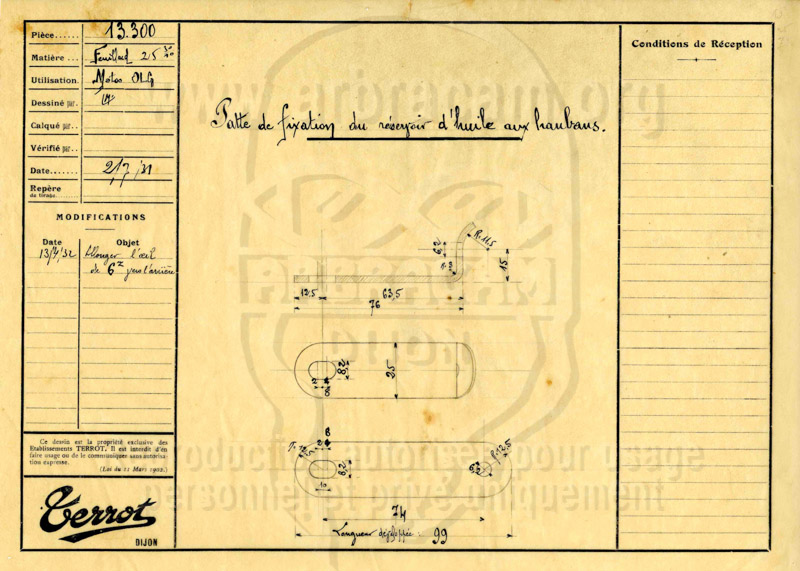 Pièce...... 13.300
Matière... Feuillard 25
Utilisation. Motos OLG
Dessiné par.
Calqué par..
Vérifié par..
Date....... 2/7/31
Repère
du tirage
MODIFICATIONS
Date Objet
13/7/32 Allonger l'œil
de 6 vers l'arrière
Ce dessin est la propriété exclusive des
Etablissements TERROT. Il est interdit d'en
faire usage ou de le communiquer sans autorisa-
tion expresse.
(Loi du 11 Mars 1902.)
Terrot
DIJON
Patte de fixation du réservoir d'huile aux haubans.
6,2
R.11,5
15
12,5
63,5
76
8,2
25
8
8
8,2
R.12,5
74
Longueur développée: 99
Conditions de Réception
www.arbracam.org
ARBRACAM
DIJON
reproduction autorisée pour usage
personnel et privé uniquement